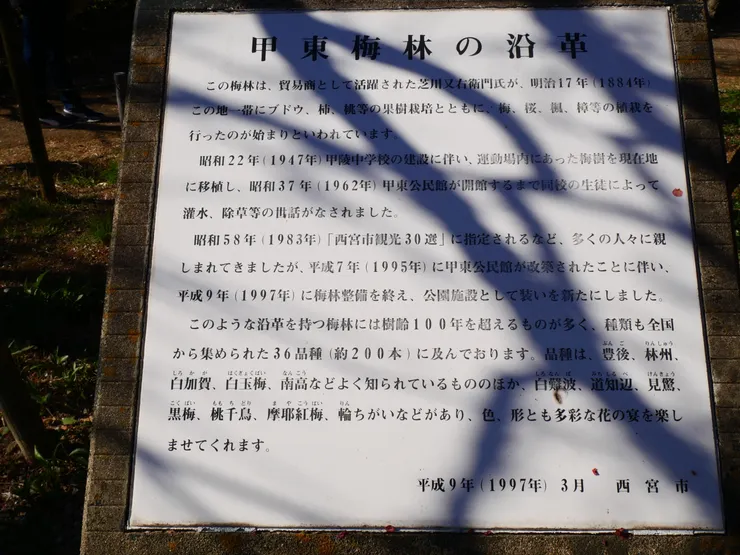 甲東梅林の沿革
この梅林は、貿易商として活躍された芝川又右衛門氏が、明治17年(1884年)
この地一帯にブドウ、柿、桃等の果樹栽培とともに、梅、桜、楓、樟等の植栽を
行ったのが始まりといわれています。
昭和22年(1947年)甲陵中学校の建設に伴い、運動場内にあった梅樹を現在地
に移植し、昭和37年(1962年)甲東公民館が開館するまで同校の生徒によって
灌水、除草等の世話がなされました。
昭和58年(1983年)「西宮市観光30選」に指定されるなど、多くの人々に親
しまれてきましたが、平成7年(1995年)に甲東公民館が改築されたことに伴い、
平成9年(1997年)に梅林整備を終え、公園施設として装いを新たにしました。
このような沿革を持つ梅林には樹齢100年を超えるものが多く、種類も全国
から集められた36品種(約200本)に及んでおります。品種は、豊後、林州、
白加賀、白玉梅、南高などよく知られているもののほか、白難波、道知辺、見驚、
黒梅、桃千鳥、摩耶紅梅、輪ちがいなどがあり、色、形とも多彩な花の宴を楽し
ませてくれます。
平成9年(1997年) 3月 西宮市